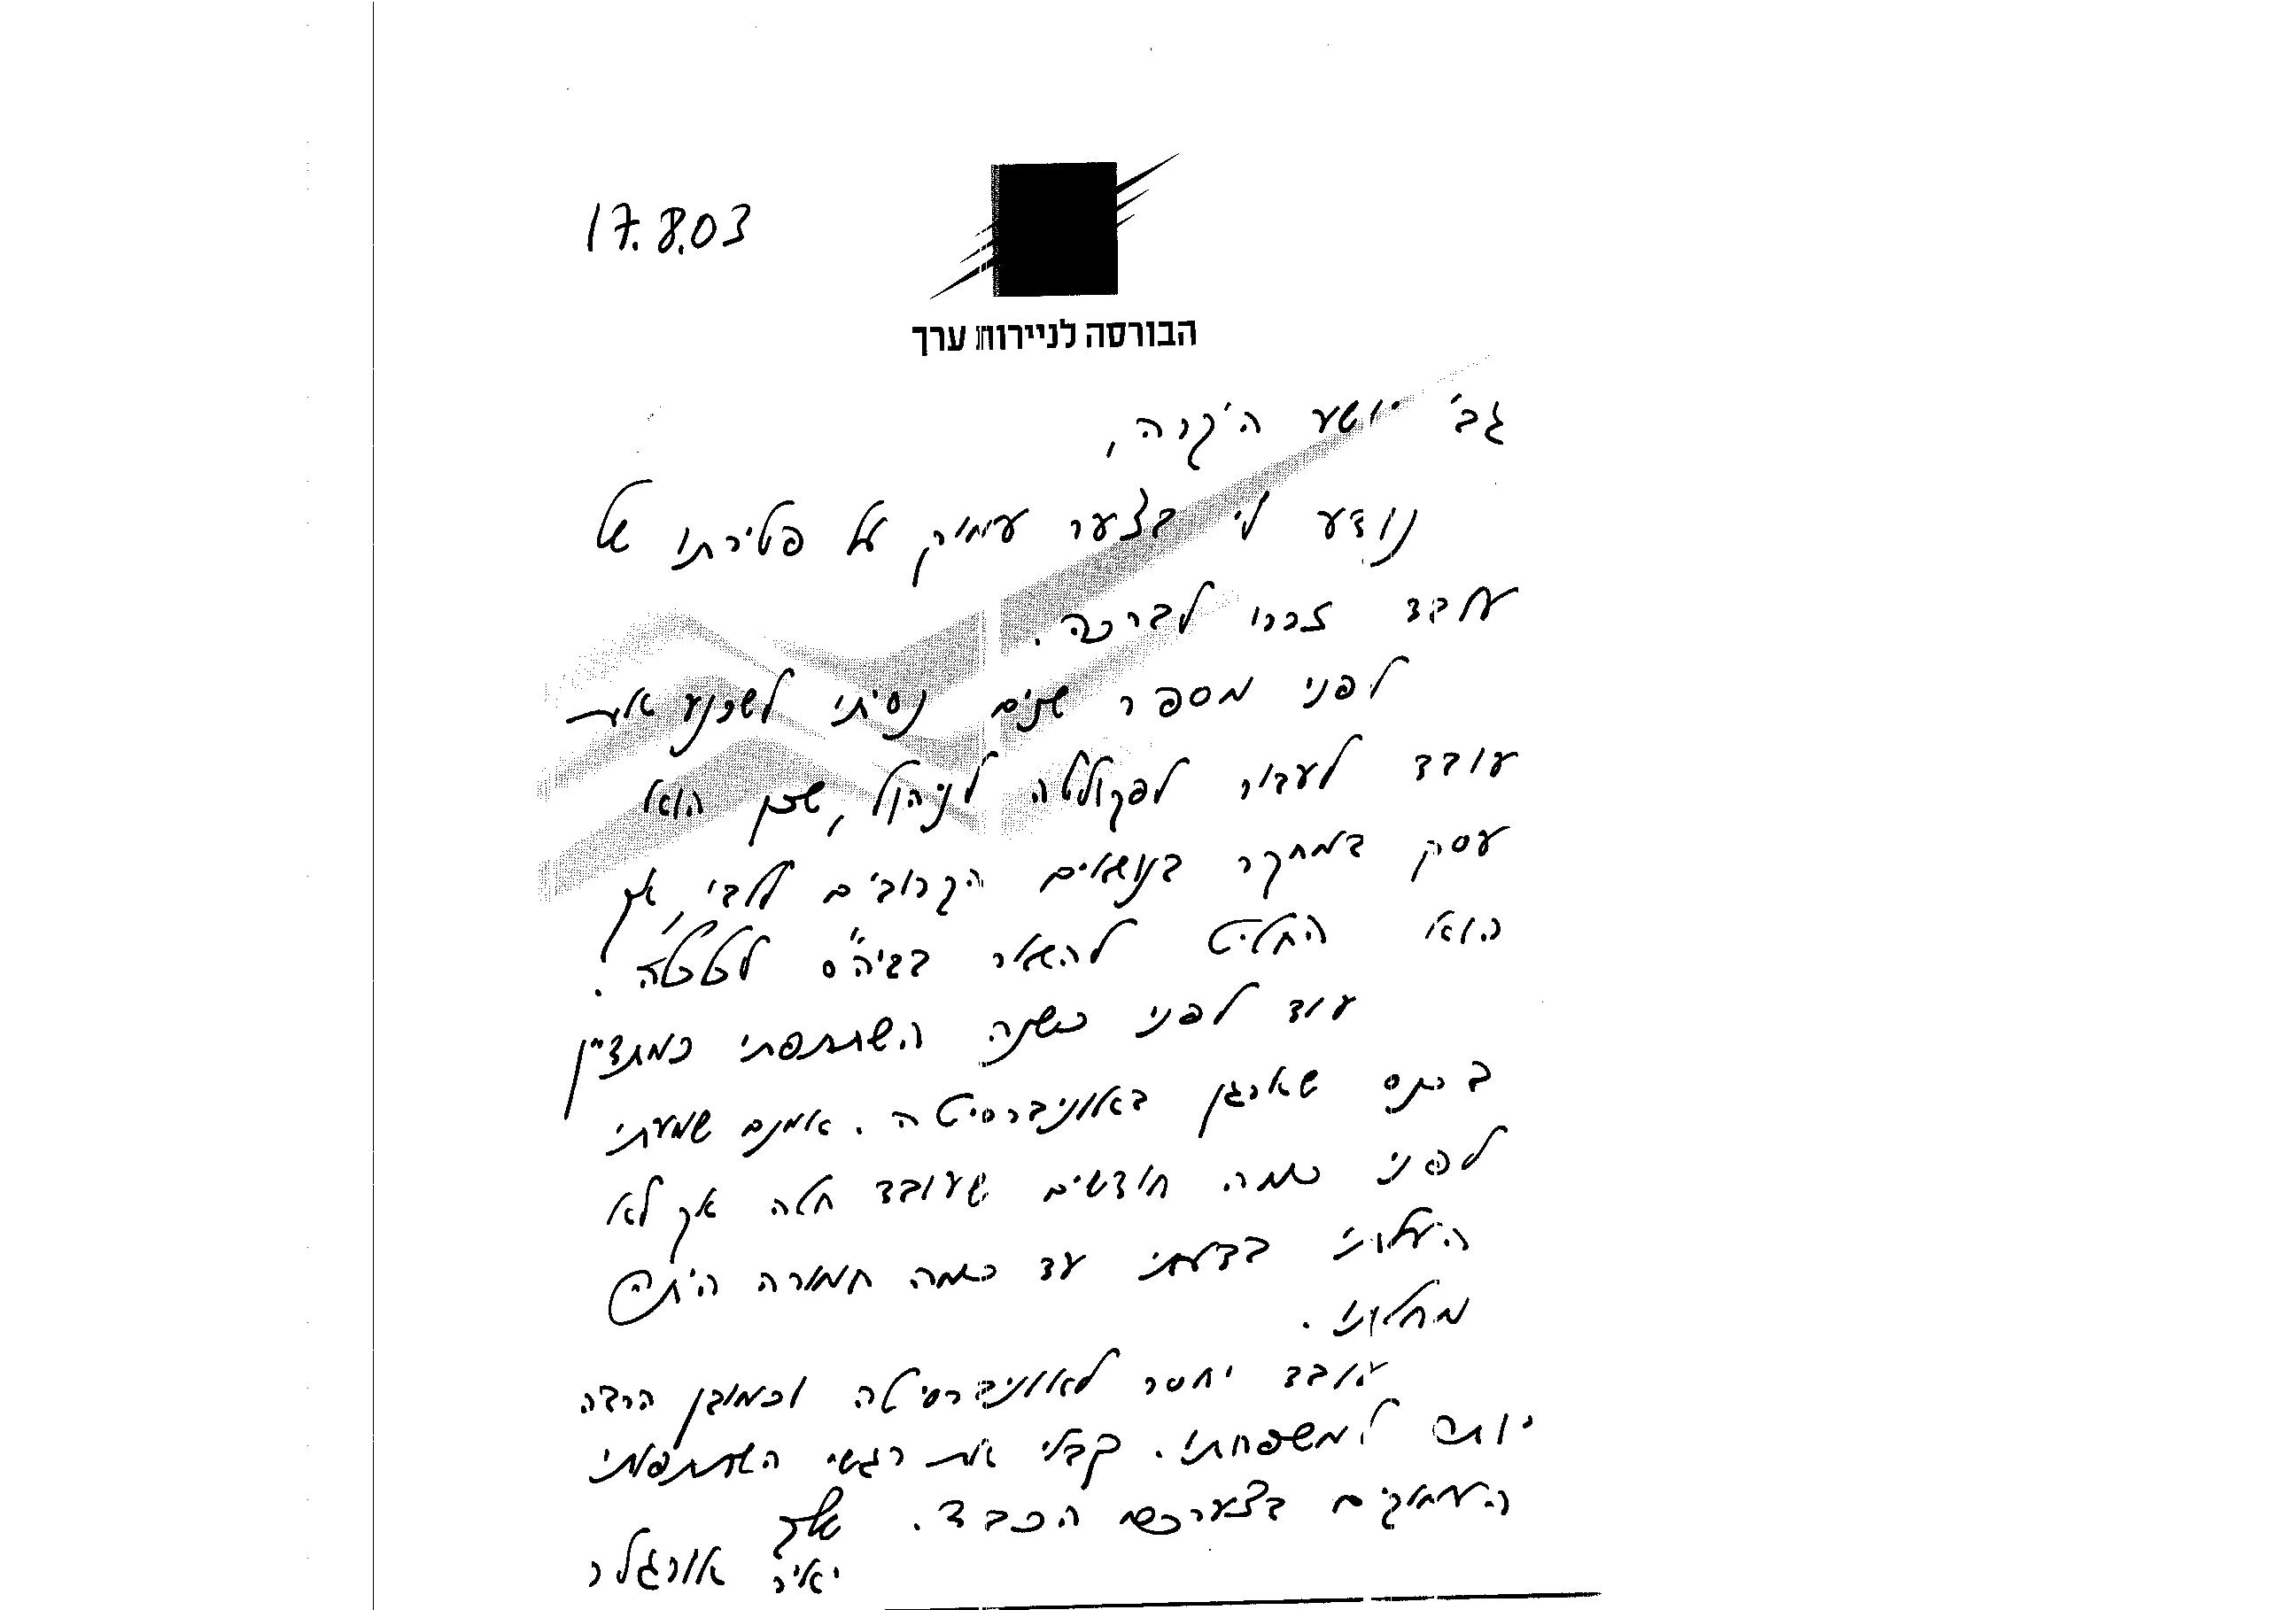 17.8.03
הבורסה לניירות ערך
גב' יושע היקרה,
נודע לי בצער עמוק על פטירתו של
עובד זכרו לברכה.
לפני מספר שנים נסיתי לשכנע את
עובד לעבור לפקולטה לניהול, שכן הוא
עסק במחקר בנושאים הקרובים ללבי, אך
הוא החליט להשאר בביה"ס לכלכלה.
עוד לפני כשנה השתתפתי כמתדיין
בכנס שארגן באוניברסיטה. אמנם שמעתי
לפני כמה חודשים שעובד חלה אך לא
העליתי בדעתי עד כמה חמורה היתה
מחלתו.
עובד יחסר לאוניברסיטה וכמובן הרבה
יותר למשפחתו. קבלי את רגשי השתתפותי
העמוקים בצערכם הכבד.
שלך
יאיר אורגלר